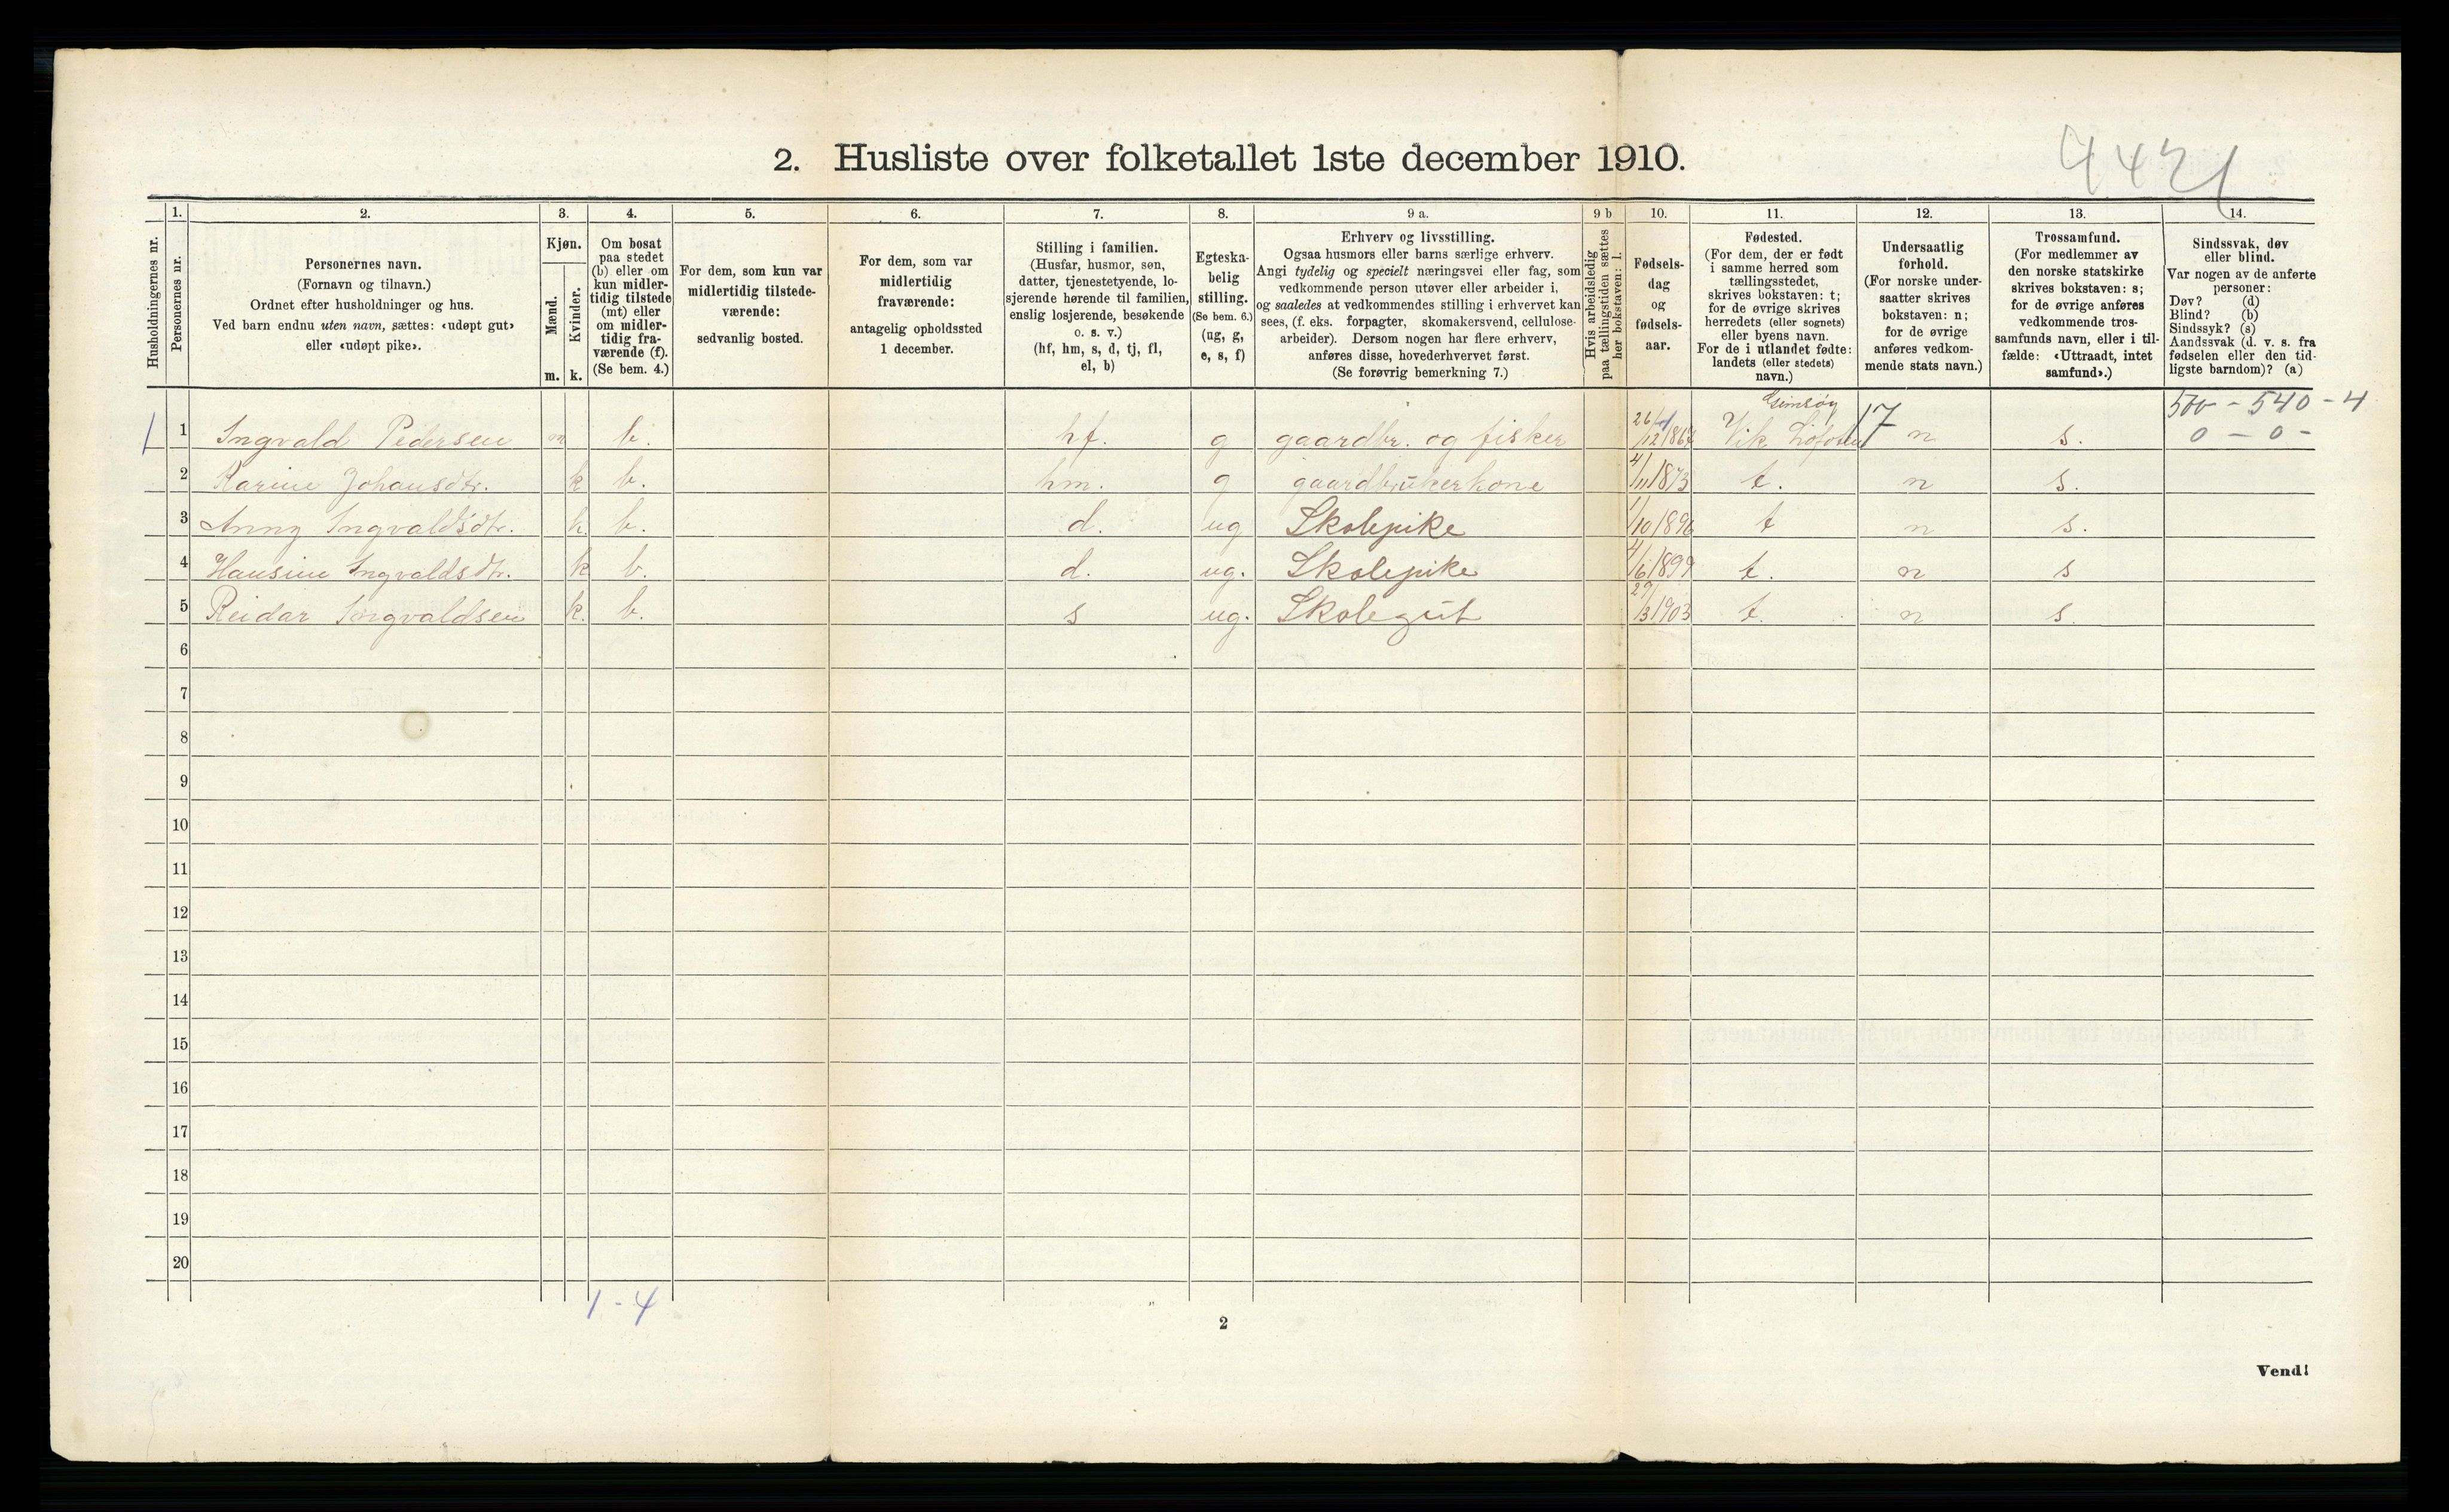 4421
2. Husliste over folketallet 1ste december 1910.
Husholdningernes nr.
1. Personernes nr.
2. Personernes navn.
(Fornavn og tilnavn.)
Ordnet efter husholdninger og hus.
Ved barn endnu uten navn, sættes: «udøpt gut»
eller «udøpt pike».
3. Kjøn.
Mænd. Kvinder.
m. k.
4. Om bosat
paa stedet
(b) eller om
kun midler-
tidig tilstede
(mt) eller
om midler-
tidig fra-
værende (f).
(Se bem. 4.)
5. For dem, som kun var
midlertidig tilstede-
værende:
sedvanlig bosted.
6. For dem, som var
midlertidig
fraværende:
antagelig opholdssted
1 december.
7. Stilling i familien.
(Husfar, husmor, søn,
datter, tjenestetyende, lo-
sjerende hørende til familien,
enslig losjerende, besøkende
o. s. v.)
(hf, hm, s, d, tj, fl,
el, b)
8. Egteska-
belig
stilling.
(Se bem. 6.)
(ug, g,
e, s, f)
9 a. Erhverv og livsstilling.
Ogsaa husmors eller barns særlige erhverv.
Angi tydelig og specielt næringsvei eller fag, som
vedkommende person utøver eller arbeider i,
og saaledes at vedkommendes stilling i erhvervet kan
sees, (f. eks. forpagter, skomakersvend, cellulose-
arbeider). Dersom nogen har flere erhverv,
anføres disse, hovederhvervet først.
(Se forøvrig bemerkning 7.)
9 b Hvis arbeidsledig
paa tællingstiden sættes
her bokstaven: l.
10. Fødsels-
dag
og
fødsels-
aar.
11. Fødested.
(For dem, der er født
i samme herred som
tællingsstedet,
skrives bokstaven: t;
for de øvrige skrives
herredets (eller sognets)
eller byens navn.
For de i utlandet fødte:
landets (eller stedets)
navn.)
12. Undersaatlig
forhold.
(For norske under-
saatter skrives
bokstaven: n;
for de øvrige
anføres vedkom-
mende stats navn.)
13. Trossamfund.
(For medlemmer av
den norske statskirke
skrives bokstaven: s;
for de øvrige anføres
vedkommende tros-
samfunds navn, eller i til-
fælde: «Uttraadt, intet
samfund».)
14. Sindssvak, døv
eller blind.
Var nogen av de anførte
personer:
Døv? (d)
Blind? (b)
Sindssyk? (s)
Aandssvak (d. v. s. fra
fødselen eller den tid-
ligste barndom)? (a)
Gimsøy 500 - 540 - 4
1 1 Ingvald Pedersen m b. hf. g gaardbr. og fisker 26/12 1867 Vik Lofoten 17 n s. 0 - 0 -
2 Karine Johansdtr. k b. hm. g gaardbrukerkone 4/11 1873 t. n s.
3 Anny Ingvaldsdtr. k b. d. ug Skolepike 1/10 1896 t n s.
4 Hansine Ingvaldsdtr. k b. d. ug. Skolepike 4/6 1899 t. n s
5 Reidar Ingvaldsen k. b. s ug. Skolegut 29/3 1903 t. n s.
6
7
8
9
10
11
12
13
14
15
16
17
18
19
20
1 - 4
2
Vend!